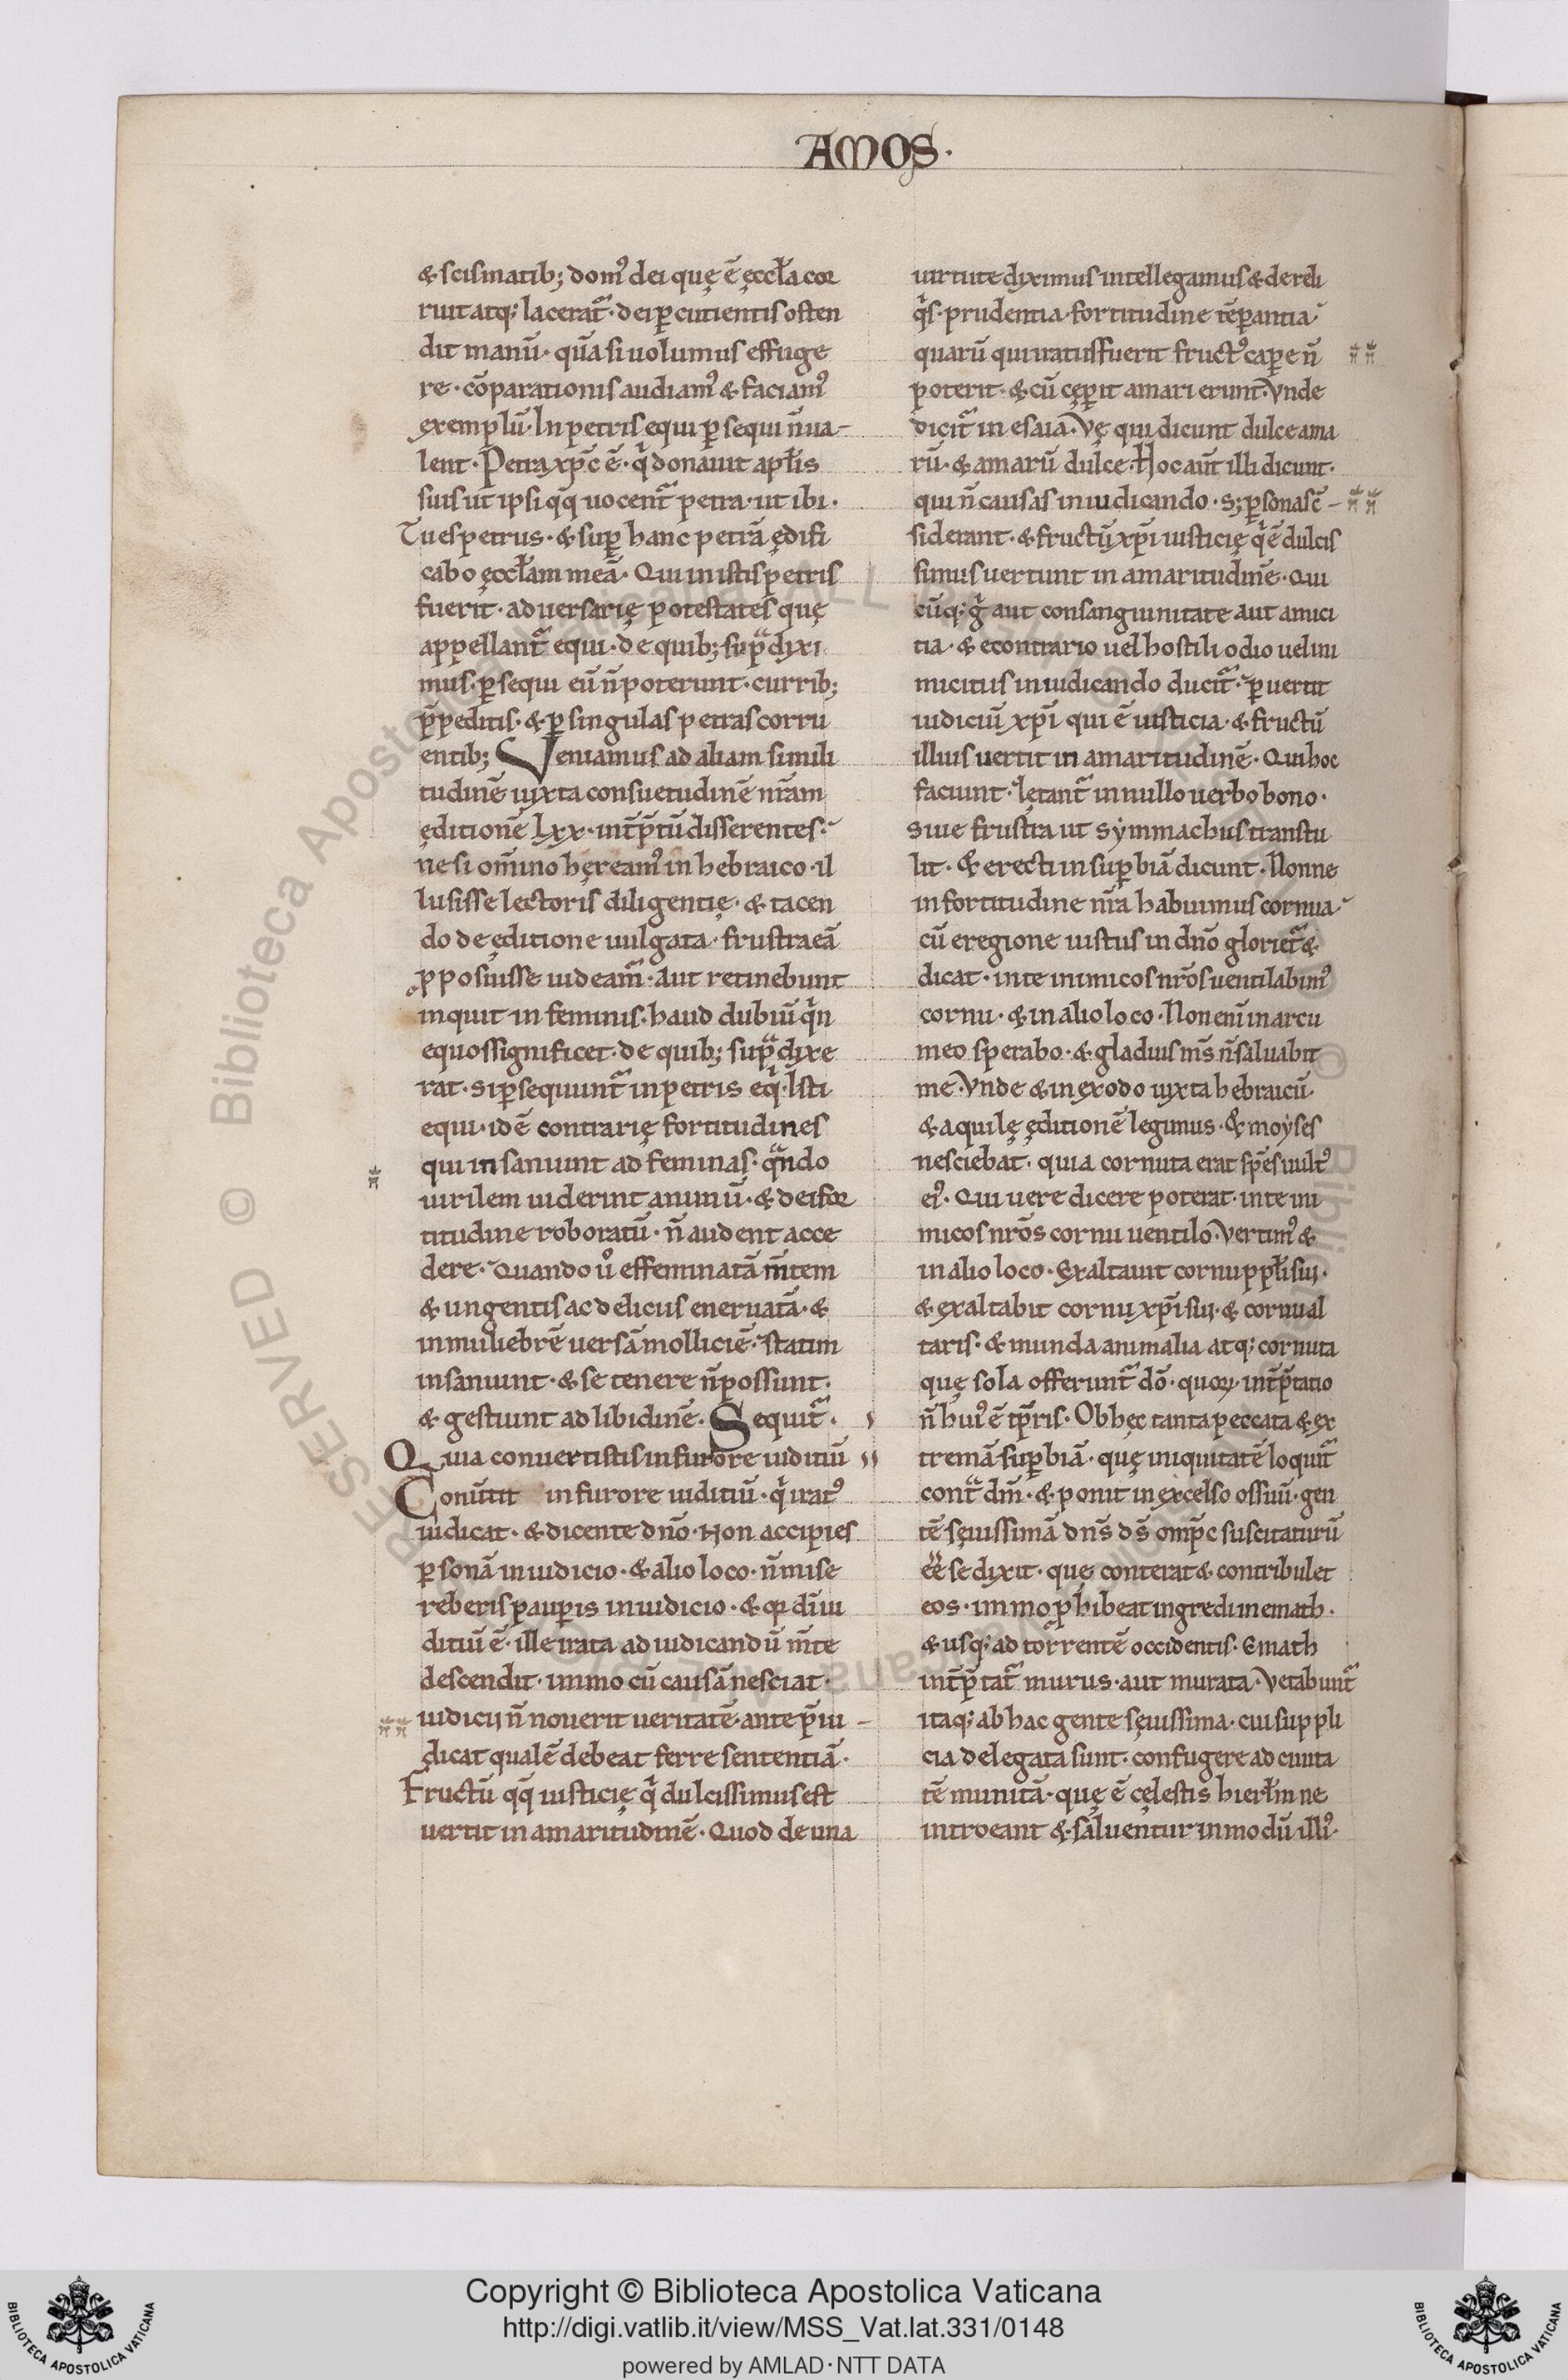 AMOS·
& scismatib; dom᾿ dei quę ē ęccƚa cor
ruit atq; lacerat᷑· dei ꝑcutientis osten
dit manū· quā si uolumus effuge
re· cōparationis audiam᾿ & faciam᾿
exemplū· In petris equi ꝑsequi n̄ ua-
lent· Petra xp̄c ē· q̇ donauit apƚis
suis ut ipsi qq̄ uocent᷑ petra· ut ibi·
Tu es petrus· & suꝑ hanc petrā ędifi
cabo ęccƚam meā· Qui in istis petris
fuerit· aduersarię potestates quę
appellant᷑ equi· de quib; sup̄dixi
mus· ꝑsequi eū n̄ poterunt· currib;
p̄peditis· & ꝑ singulas petras corru
entib; Veniamus ad aliam simili
tudinē iuxta consuetudinē nr̄am
ęditionē lxx· int̄p̄tū disserentes·
ne si om̄ino hęream᾿ in hebraico· il
lusisse lectoris diligentię· & tacen
do de ęditione uulgata· frustra eā
ꝓposuisse uideam᷑· Aut retinebunt
inquit in feminis· haud dubiū q̇n
equos significet· de quib; sup̄dixe
rat· si ꝑsequunt᷑ in petris eq̇· Isti
equi· id ē contrarię fortitudines
qui insaniunt ad feminas· qn̄do
uirilem uiderint animū· & dei for
titudine roboratū· n̄ audent acce
dere· Quando u᷎ effeminatā m̄tem
& ungentis ac deliciis eneruatā· &
in muliebrē uersā molliciē· statim
insaniunt· & se tenere n̄ possunt·
& gestiunt ad libidinē· Sequit᷑·
Quia conuertistis in furore iuditiū
Conūtit in furore iuditiū· q̇ irat᾿
iudicat· & dicente dn̄o· Non accipies
ꝑsonā in iudicio· & alio loco· n̄ mise
reberis pauꝑis in iudicio· & qr dī iu
ditiū ē· ille irata ad iudicandū m̄te
descendit· immo cū causā nesciat·
iudicij n̄ nouerit ueritatē· ante p̄iu-
dicat qualē debeat ferre sententiā·
Fructū qq̄ iusticię q̇ dulcissimus est
uertit in amaritudinē· Quod de una
uirtute diximus intellegamus & de reli
q̇s· prudentia· fortitudine tēꝑantia·
quarū qui iratus fuerit fruct᾿ caꝑe n̄
poterit· & cū cęꝑit amari erunt· Vnde
dicit᷑ in esaia· Vę qui dicunt dulce ama
rū· & amarū dulce· Hoc aūt illi dicunt·
qui n̄ causas in iudicando· s; ꝑsonas c̄-
siderant· & fructū xp̄i iusticię q̇ ē dulcis
simus uertunt in amaritudinē· Qui
cūq; g̊ aut consanguinitate aut amici
tia· & econtrario uel hostili odio uel ini
micitiis in iudicando ducit᷑· ꝑuertit
iudiciū xp̄i qui ē iusticia· & fructū
illius uertit in amaritudinē· Qui hoc
faciunt· lętant᷑ in nullo uerbo bono·
siue frustra ut symmachus transtu
lit· & erecti in suꝑbiā dicunt· Nonne
in fortitudine nr̄a habuimus cornua·
cū e regione iustus in dn̄o gloriet᷑ &
dicat· in te inimicos nr̄os uentilabim᾿
cornu· & in alio loco· Non eni᷎ in arcu
meo sperabo· & gladius ms̄ n̄ saluabit
me· Vnde & in exodo iuxta hebraicū·
& aquilę ęditionē legimus· & moyses
nesciebat· quia cornuta erat sp̄es uult᾿
ei᾿· Qui uere dicere poterat· in te ini
micos nr̄os cornu uentilo· Vertim᾿ &
in alio loco· Exaltauit cornu ppƚi sui·
& exaltabit cornu xp̄i sui· & cornu al
taris· & munda animalia atq; cornuta
quę sola offerunt᷑ dō· quoꝝ int̄p̄tatio
n̄ hui᾿ ē tp̄ris· Ob hęc tanta peccata & ex
tremā suꝑbiā· quę iniquitatē loquit᷑
contᷓ dm̄· & ponit in excelso os suū· gen
tē sęuissimā dn̄s ds̄ omp̄c suscitaturū
eē se dixit· quę conterat & contribulet
eos· immo ꝓhibeat ingredi in emath·
& usq; ad torrentē occidentis· Emath
int̄p̄tat᷑ murus· aut murata· Vetabunt᷑
itaq; ab hac gente sęuissima· cui suppli
cia delegata sunt· confugere ad ciuita
tē munitā· quę ē cęlestis hierƚm ne
introeant & saluentur in modū illi᾿·
Copyright © Biblioteca Apostolica Vaticana
http://digi.vatlib.it/view/MSS_Vat.lat.331/0148
powered by AMLAD·NTT DATA